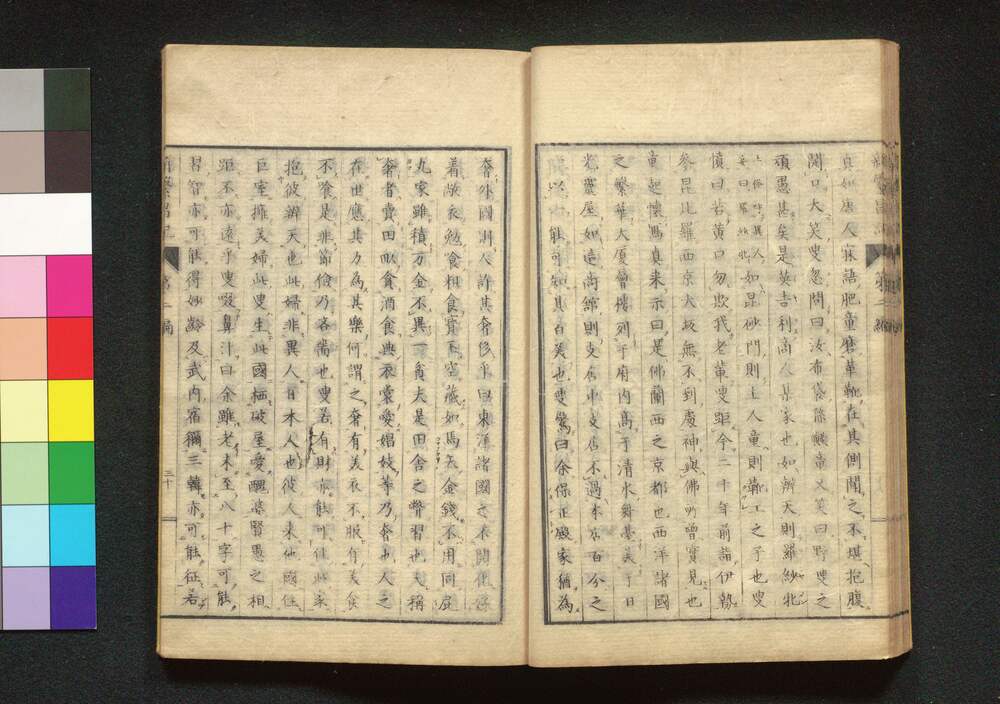 真如唐人寐語肥童磨革靴在其側聞之不堪抱腹
開口大笑叟忽問曰汝布袋除 童又笑曰野叟之
頑愚甚矣是英吉利商人某家也如辨天則羅紗牝
上俗呼異人妾曰羅紗牝如昆砂門則上人童則靴工之子也叟
憤曰若黄口勿欺我老輩叟距今二十年前詣伊勢
參昆比羅西京大坂無不到處神與佛所曾實見也
童起懷馮真来示曰是佛蘭西之京都也西洋諸國
之繁華大厦曾樓列于府内高于清水舞臺美于日
光靈屋如遠商館則支店中支店不過本店百分之
以 能可知其百美也叟驚曰余保正殿家稱為
奢外國洲人許其奢侈乎曰東洋諸國之未開化好
着敝衣勉食粗食寶玉空藏如馬矢金錢不用同屁
丸家雖積万金不異一貧夫是田舎之弊習也夫稱
奢者賣田畝食酒食典衣裳愛娼妓等乃奢也人之
在世應其力為其樂何謂之奢有美衣不服有美食
不飡是非節儉乃吝嗇也叟若有財亦能可住此家
抱彼辨天也此婦非異人日本人也彼人来他國住
巨室擁美婦此叟生此國栖破屋愛醜婆賢愚之相
距不亦遠乎叟啜鼻汁曰余雖老未至八十字可能
習智亦可能得妙齡及武内宿禰三韓亦可能征若
第二編
三十